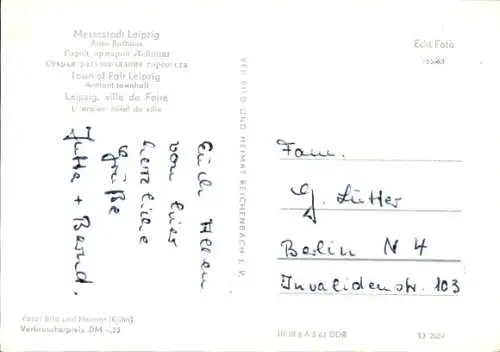 Messestadt Leipzig
Altes Rathaus
Город ярмарки Лейпциг
Town of Fair Leipzig
Ancient townhall
Leipzig, ville de Foire
L'ancien hôtel de ville
Edit Foto
VEB BILD UND HEIMAT REICHENBACH I. V.
Euch Allen
von hier
herzliche
Grüße
Jutta + Bernd.
Fam.
G. Lütter
Berlin N 4
Invalidenstr. 103
Foto: Bild und Heimat (Kühn)
Verbraucherpreis DM -,25
DDR